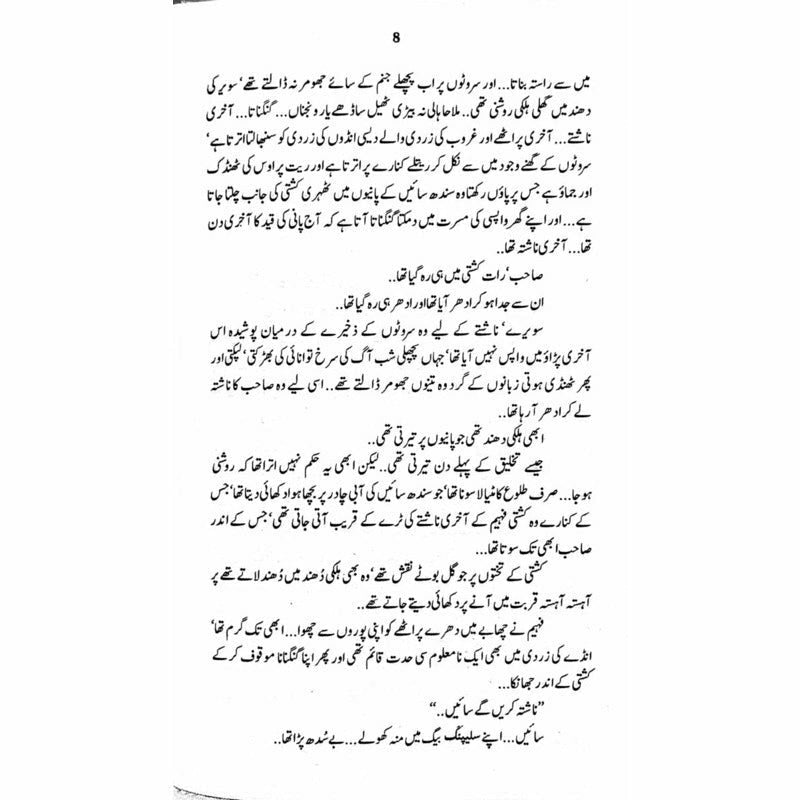 8
میں سے راستہ بناتا... اور سروٹوں پر اب پچھلے جنم کے سائے جھومر نہ ڈالتے تھے‘ سویر کی
دھند میں گھلی ہلکی روشنی تھی.. ملاحا ہالی نہ بیڑی ٹھیل ساڈھے یار ونجناں... گنگناتا... آخری
ناشتے... آخری پراٹھے اور غروب کی زردی والے دیسی انڈوں کی زردی کو سنبھالتا اترتا ہے‘
سروٹوں کے گھنے وجود میں سے نکل کر ریتلے کنارے پر اترتا ہے اور ریت پر اوس کی ٹھنڈک
اور جماؤ ہے جس پر پاؤں رکھتا وہ سندھ سائیں کے پانیوں میں ٹھہری کشتی کی جانب چلتا جاتا
ہے... اور اپنے گھر واپسی کی مسرت میں دمکتا گنگناتا آتا ہے کہ آج پانی کی قید کا آخری دن
تھا... آخری ناشتہ تھا..
صاحب‘ رات کشتی میں ہی رہ گیا تھا..
ان سے جدا ہو کر ادھر آیا تھا اور ادھر ہی رہ گیا تھا..
سویرے‘ ناشتے کے لیے وہ سروٹوں کے ذخیرے کے درمیان پوشیدہ اس
آخری پڑاؤ میں واپس نہیں آیا تھا‘ جہاں پچھلی شب آگ کی سرخ توانائی کی بھڑکتی‘ لپکتی اور
پھر ٹھنڈی ہوتی زبانوں کے گرد وہ تینوں جھومر ڈالتے تھے.. اسی لیے وہ صاحب کا ناشتہ
لے کر ادھر آ رہا تھا..
ابھی ہلکی دھند تھی جو پانیوں پر تیرتی تھی..
جیسے تخلیق کے پہلے دن تیرتی تھی.. لیکن ابھی یہ حکم نہیں اترا تھا کہ روشنی
ہو جا... صرف طلوع کا مٹیالا سونا تھا‘ جو سندھ سائیں کی آبی چادر پر بچھا ہوا دکھائی دیتا تھا‘ جس
کے کنارے وہ کشتی فہیم کے آخری ناشتے کی ٹرے کے قریب آتی جاتی تھی‘ جس کے اندر
صاحب ابھی تک سوتا تھا...
کشتی کے تختوں پر جو گل بوٹے نقش تھے‘ وہ بھی ہلکی دُھند میں دُھندلاتے تھے پر
آہستہ آہستہ قربت میں آنے پر دکھائی دیتے جاتے تھے..
فہیم نے چھابے میں دھرے پراٹھے کو اپنی پوروں سے چھوا... ابھی تک گرم تھا‘
انڈے کی زردی میں بھی ایک نامعلوم سی حدت قائم تھی اور پھر اپنا گنگنانا موقوف کر کے
کشتی کے اندر جھانکا...
”ناشتہ کریں گے سائیں..“
سائیں... اپنے سلیپنگ بیگ میں منہ کھولے... بے سُدھ پڑا تھا..